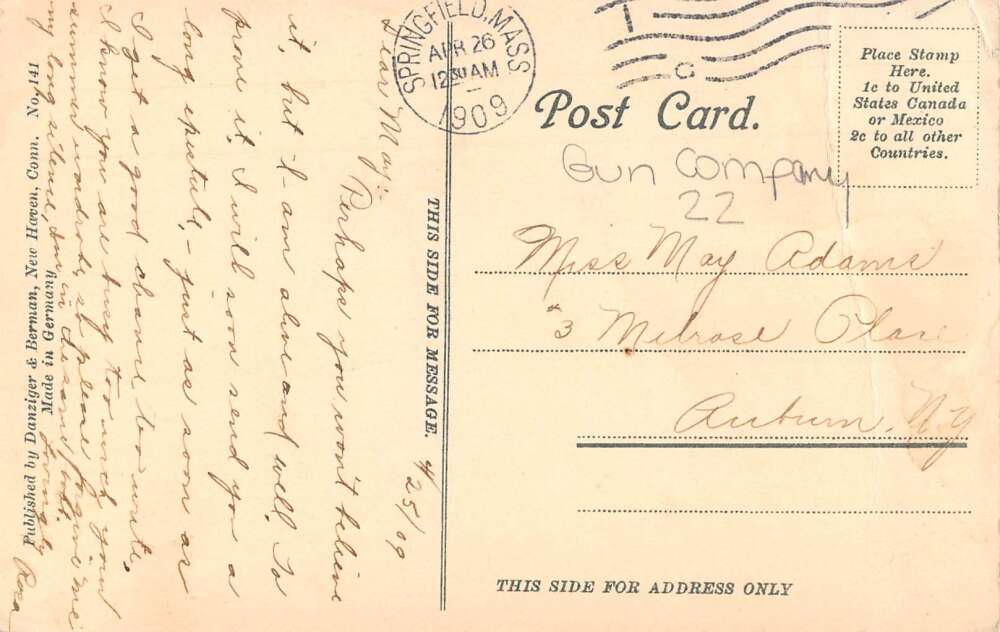 SPRINGFIELD, MASS
APR 26
12 30 AM
1909
Post Card.
Place Stamp
Here.
1c to United
States Canada
or Mexico
2c to all other
Countries.
Gun Company
22
Miss May Adams
#3 Melrose Place
Auburn, N.Y
THIS SIDE FOR ADDRESS ONLY
THIS SIDE FOR MESSAGE.
4/25/09
Dear May:-
Perhaps you won't believe
it, but I am alive and well. To
prove it I will soon send you a
long epistle,- just as soon as
I get a good chance to write.
I know you are busy too with your
summer wardrobe, so please forgive me
my long silence,
Lovingly
Rosa
Published by Danziger & Berman, New Haven, Conn. No. 141
Made in Germany